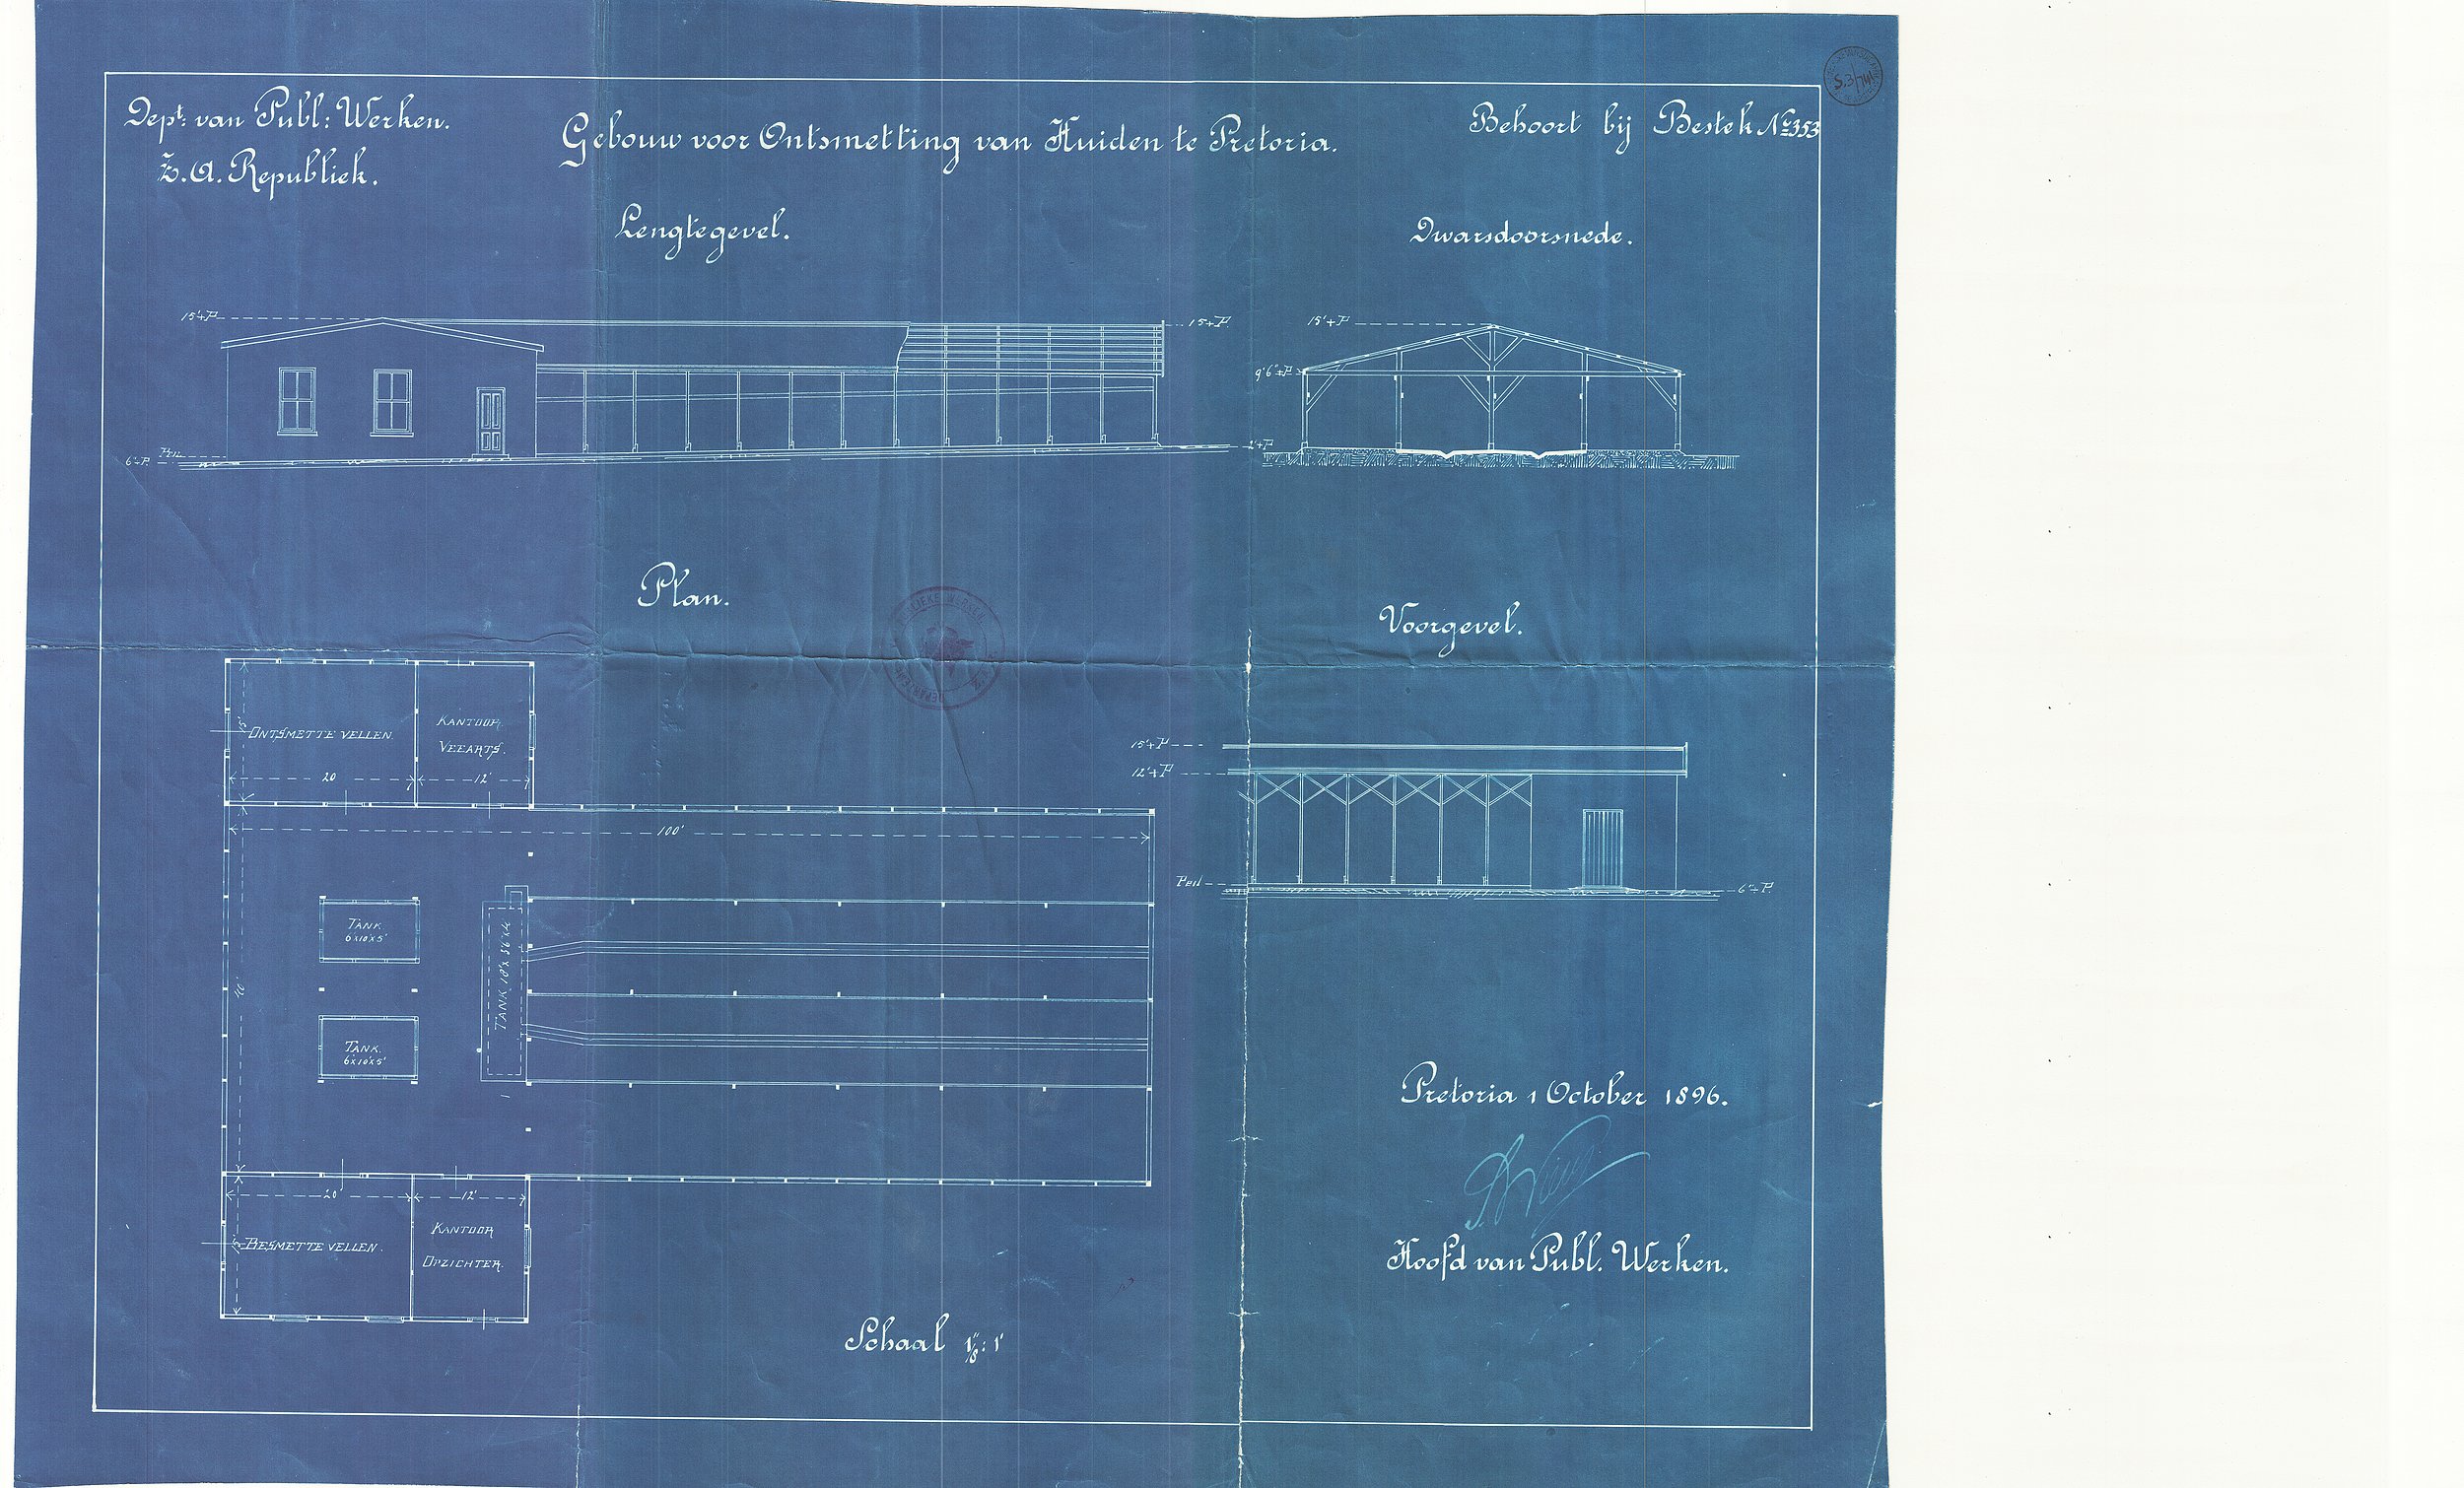 Dept: van Publ: Werken.
Z.A. Republiek.
Gebouw voor Ontsmetting van Huiden te Pretoria.
Behoort bij Bestek No 353
Lengtegevel.
Dwarsdoorsnede.
15'+P
15'+P
15'+P
9'6"+P
Peil
6"÷P.
Plan.
Voorgevel.
ONTSMETTE VELLEN.
KANTOOR
VEEARTS.
20
12'
100'
15'+P
12'+P
Peil
6"÷P.
TANK
6'x10'x5'
40'
TANK
6'x10'x5'
20'
12'
BESMETTE VELLEN.
KANTOOR
OPZICHTER.
Pretoria 1 October 1896.
Hoofd van Publ. Werken.
Schaal 1/8": 1'